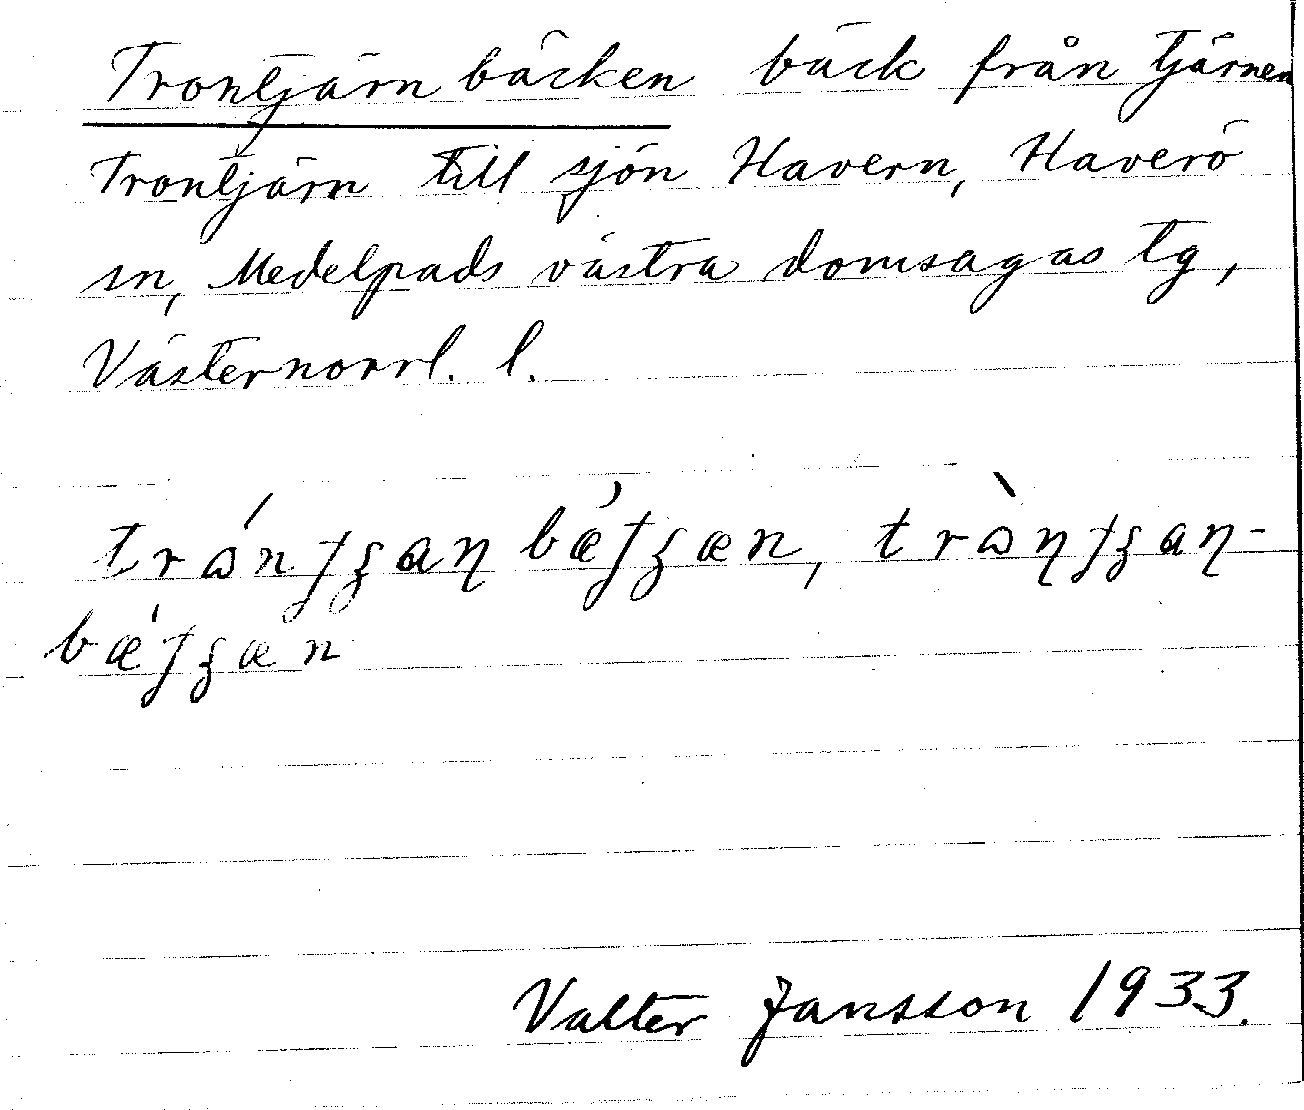 Trontjärnbäcken bäck från tjärnen
Trontjärn till sjön Havern, Haverö
sn, Medelpads västra domsagas tg,
Västernorrl. l.
Valter Jansson 1933.